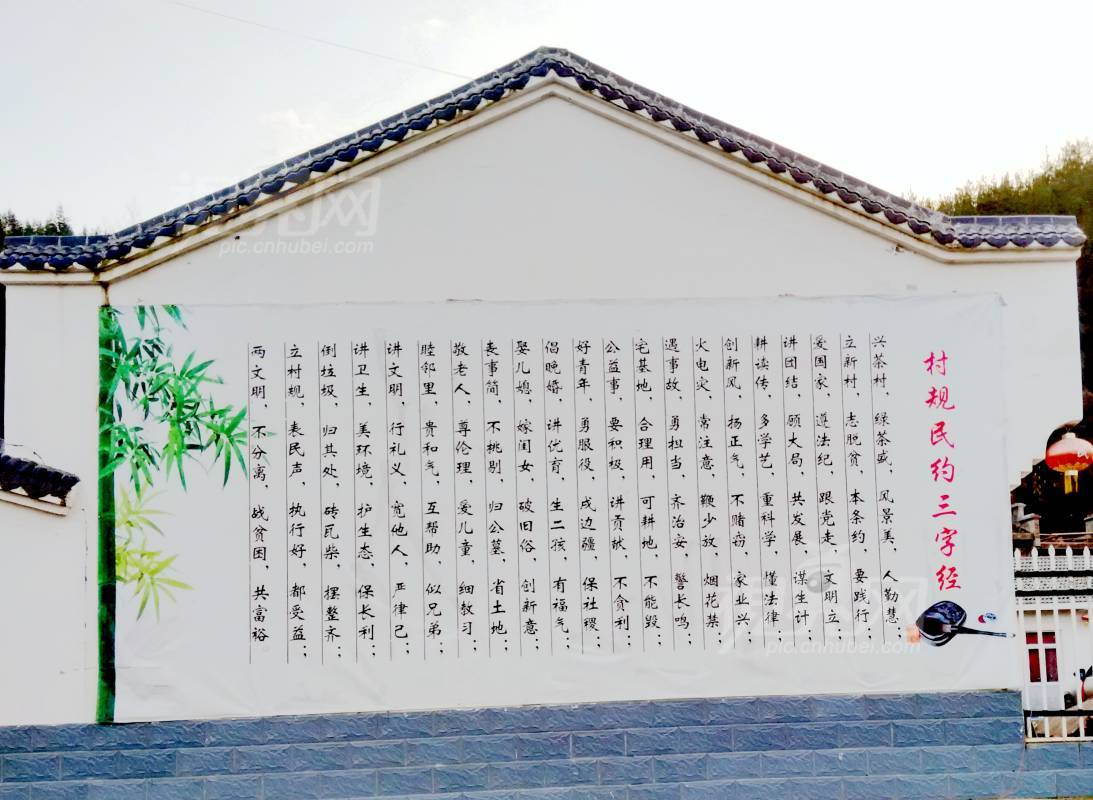 村规民约三字经
兴茶村，绿茶盛，风景美，人勤慧；
立新村，志脱贫，本条约，要践行；
爱国家，遵法纪，跟党走，文明立；
讲团结，顾大局，共发展，谋生计；
耕读传，多学艺，重科学，懂法律；
创新风，扬正气，不赌窃，家业兴；
火电灾，常注意，鞭少放，烟花禁；
遇事故，勇担当，齐治安，警长鸣；
宅基地，合理用，可耕地，不能毁；
公益事，要积极，讲贡献，不贪利；
好青年，勇服役，戍边疆，保社稷；
倡晚婚，讲优育，生二孩，有福气；
娶儿媳，嫁闺女，破旧俗，创新意；
丧事简，不挑剔，归公墓，省土地；
敬老人，尊伦理，爱儿童，细教习；
睦邻里，贵和气，互帮助，似兄弟；
讲文明，行礼义，宽他人，严律己；
讲卫生，美环境，护生态，保长利；
倒垃圾，归其处，砖瓦柴，摆整齐；
立村规，表民声，执行好，都受益；
两文明，不分离，战贫困，共富裕
pic.cnhubei.com
pic.cnhubei.com